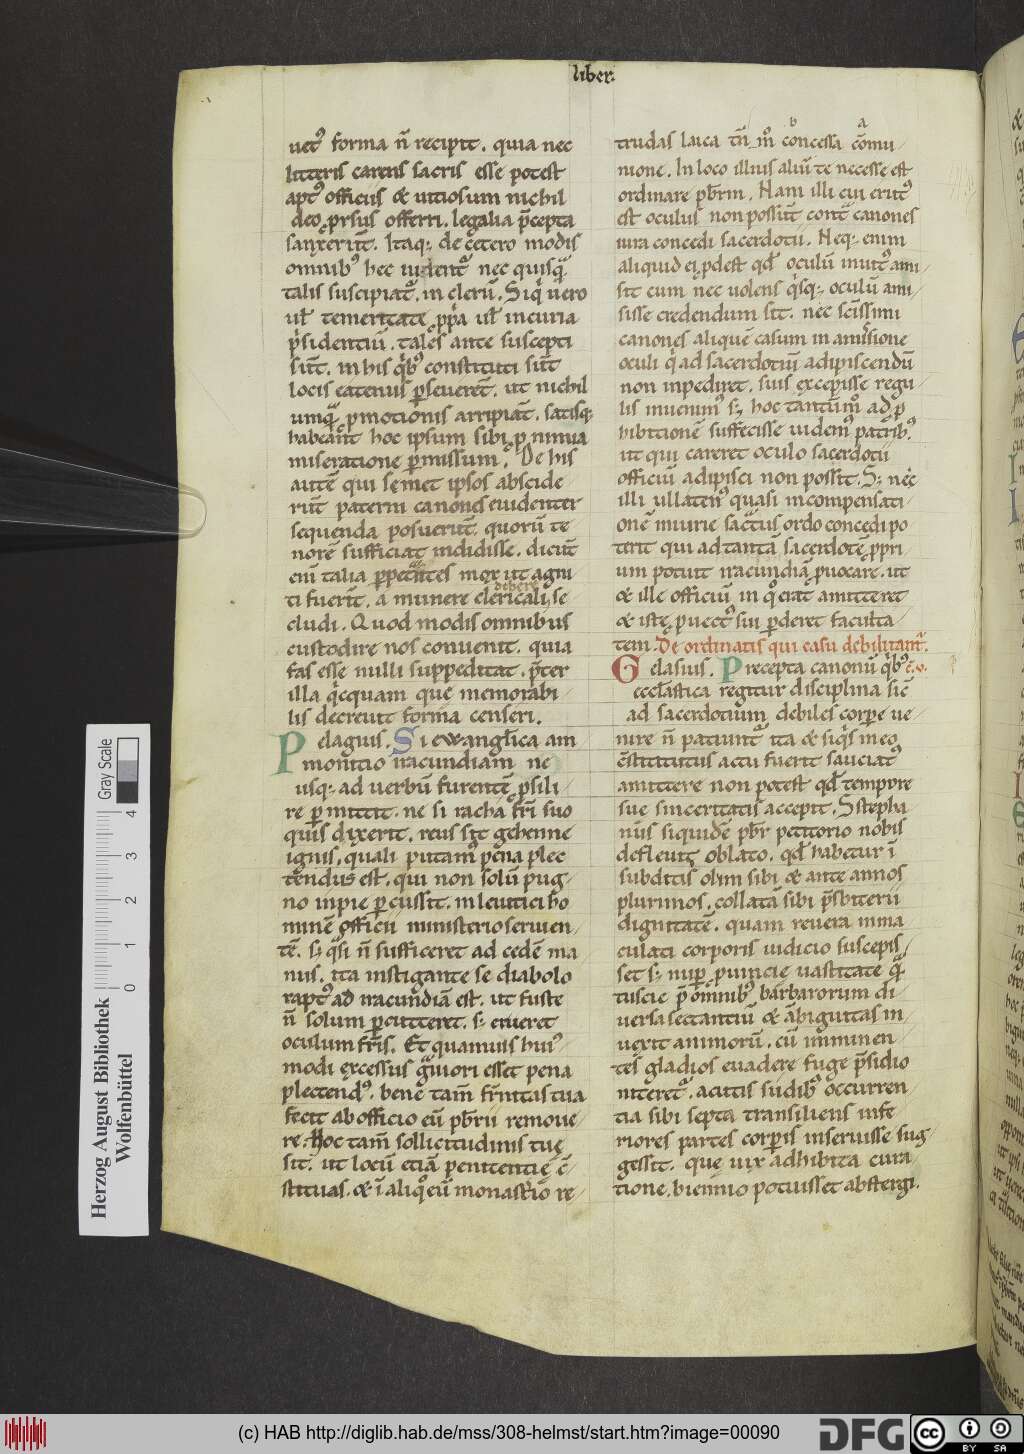 liber.
uetꝰ forma ñ recipit. quia nec
litteris carens sacris esse potest
aptꝰ officiis & uitiosum nichil
deo prsus offerri. legalia p̄cepta
sanxerūt. Itaq; de cetero modis
omnibꝰ hec uidentᷣ nec quisquā
talis suscipiat. in clerū. Siq̄ uero
uł temeritate ꝓpͥa uł incuria
pͥsidentiū. tales ante suscepti
sūt. in his qͥbꝰ constituti sūt
locis eatenus ꝑseuerēt. ut nichil
umqᷓ ꝓmotionis arripiāt. satisq;
habeānt hoc ipsum sibi ꝓ nimia
miseratione ꝑmissum. De his
autē qui semet ipsos abscide
rūt paterni canones euidenter
sequenda posuerūt. quorū te
norē sufficiat indidisse. dicūt
enī talia ꝑpetrantes mox ut agni
debere
ti fuerīt. a munere clericali se
cludi. Quod modis omnibus
custodire nos conuenit. quia
fas esse nulli suppeditat. p̄ter
illa q̄cquam que memorabi
lis decreuit forma censeri.
Pelagius. Si ewangl̄ica am
monitio iracundiam ne
usq; ad uerbū furentē ꝓsili
re ꝑmittit. ne si racha fr̄i suo
quis dixerit. reus sit gehenne
ignis. quali putamꝰ pena plec
tendus est. qui non solū pug
no inpie ꝑcussit. in leuitici ho
minē officii ministerio seruien
tē. s; qͣsi ñ sufficeret ad cedē ma
nus. ita instigante se diabolo
raptꝰ ad iracundiā est. ut fuste
ñ solum ꝑcutteret. s; erueret
oculum fr̄is. Et quamuis huiꝰ
modi excessus gͣuiori esset pena
plectendꝰ. bene tam̄ fr̄nitas tua
fecit ab officio eū pb̄rii remoue
re. Hoc tam̄ sollicitudinis tuę
sit. ut locū etiā penitentię c̄
stituas. & ī aliqͦ eū monast̄io re
trudas laica tn̄ m̊ concessa cōmu
b a
nione. In loco illius aliū te necesse est
ordinare pb̄rm. Nam illi cui erutꝰ
est oculus non possūt contͣ canones
iura concedi sacerdotii. Neq; enim
aliquid ei ꝓdest qd̄ oculū inuitꝰ ami
sit cum nec uolens qͥsq; oculū ami
sisse credendum sit. nec scīssimi
canones aliquē casum in amissione
oculi qͥ ad sacerdotiū adipiscendū
non inpediret. suis excepisse regu
lis inuenimꝰ s; hoc tantūm̊ ad ꝓ
hibitionē suffecisse uidemꝰ patribꝰ.
ut qui careret oculo sacerdotii
officiū adipisci non possit. S; nec
illi ullatenꝰ quasi in compensati
onē iniurie sacͣtus ordo concedi po
terit qui ad tantā sacerdotē ꝓpri
um potuit iracundiā ꝓuocare. ut
& ille officiū in qͦ erat amitteret
& iste ꝓuectꝰ sui ꝑderet faculta
tem. De ordinatis qui casu debilitantᷣ.
Gelasius. Precepta canonū qͥbꝰ
ecclesiastica regitur disciplina sic̄
ad sacerdotium debiles corꝑe ue
nire ñ patiuntᷣ ita & siqͥs in eo
c̄stitutus actu fuerit sauciatꝰ
amittere non potest qd̄ tempore
sue sinceritatis accepit. Stepha
nus siquidē pb̄r petitorio nobis
defleuit oblato. qd̄ habetur ī
subditis olim sibi & ante annos
plurimos. collatā sibi p̄sbiterii
dignitatē. quam reuera inma
culati corporis iudicio suscepis
set s; nuꝑ ꝓuincie uastitate qᷓ
tuscie p̄ omnibꝰ barbarorum di
uersa sectantiū & ābiguitas in
uexit animorū. cū imminen
tes gladios euadere fuge p̄sidio
niteretᷣ. acutis sudibꝰ occurren
tia sibi septa transiliens infe
riores partes corꝑis inseruisse sug
gessit. que uix adhibita cura
tione. biennio potuisset abstergi.
Gray Scale
4
3
2
1
0
Herzog August Bibliothek
Wolfenbüttel
(c) HAB http://diglib.hab.de/mss/308-helmst/start.htm?image=00090
DFG
cc
BY SA